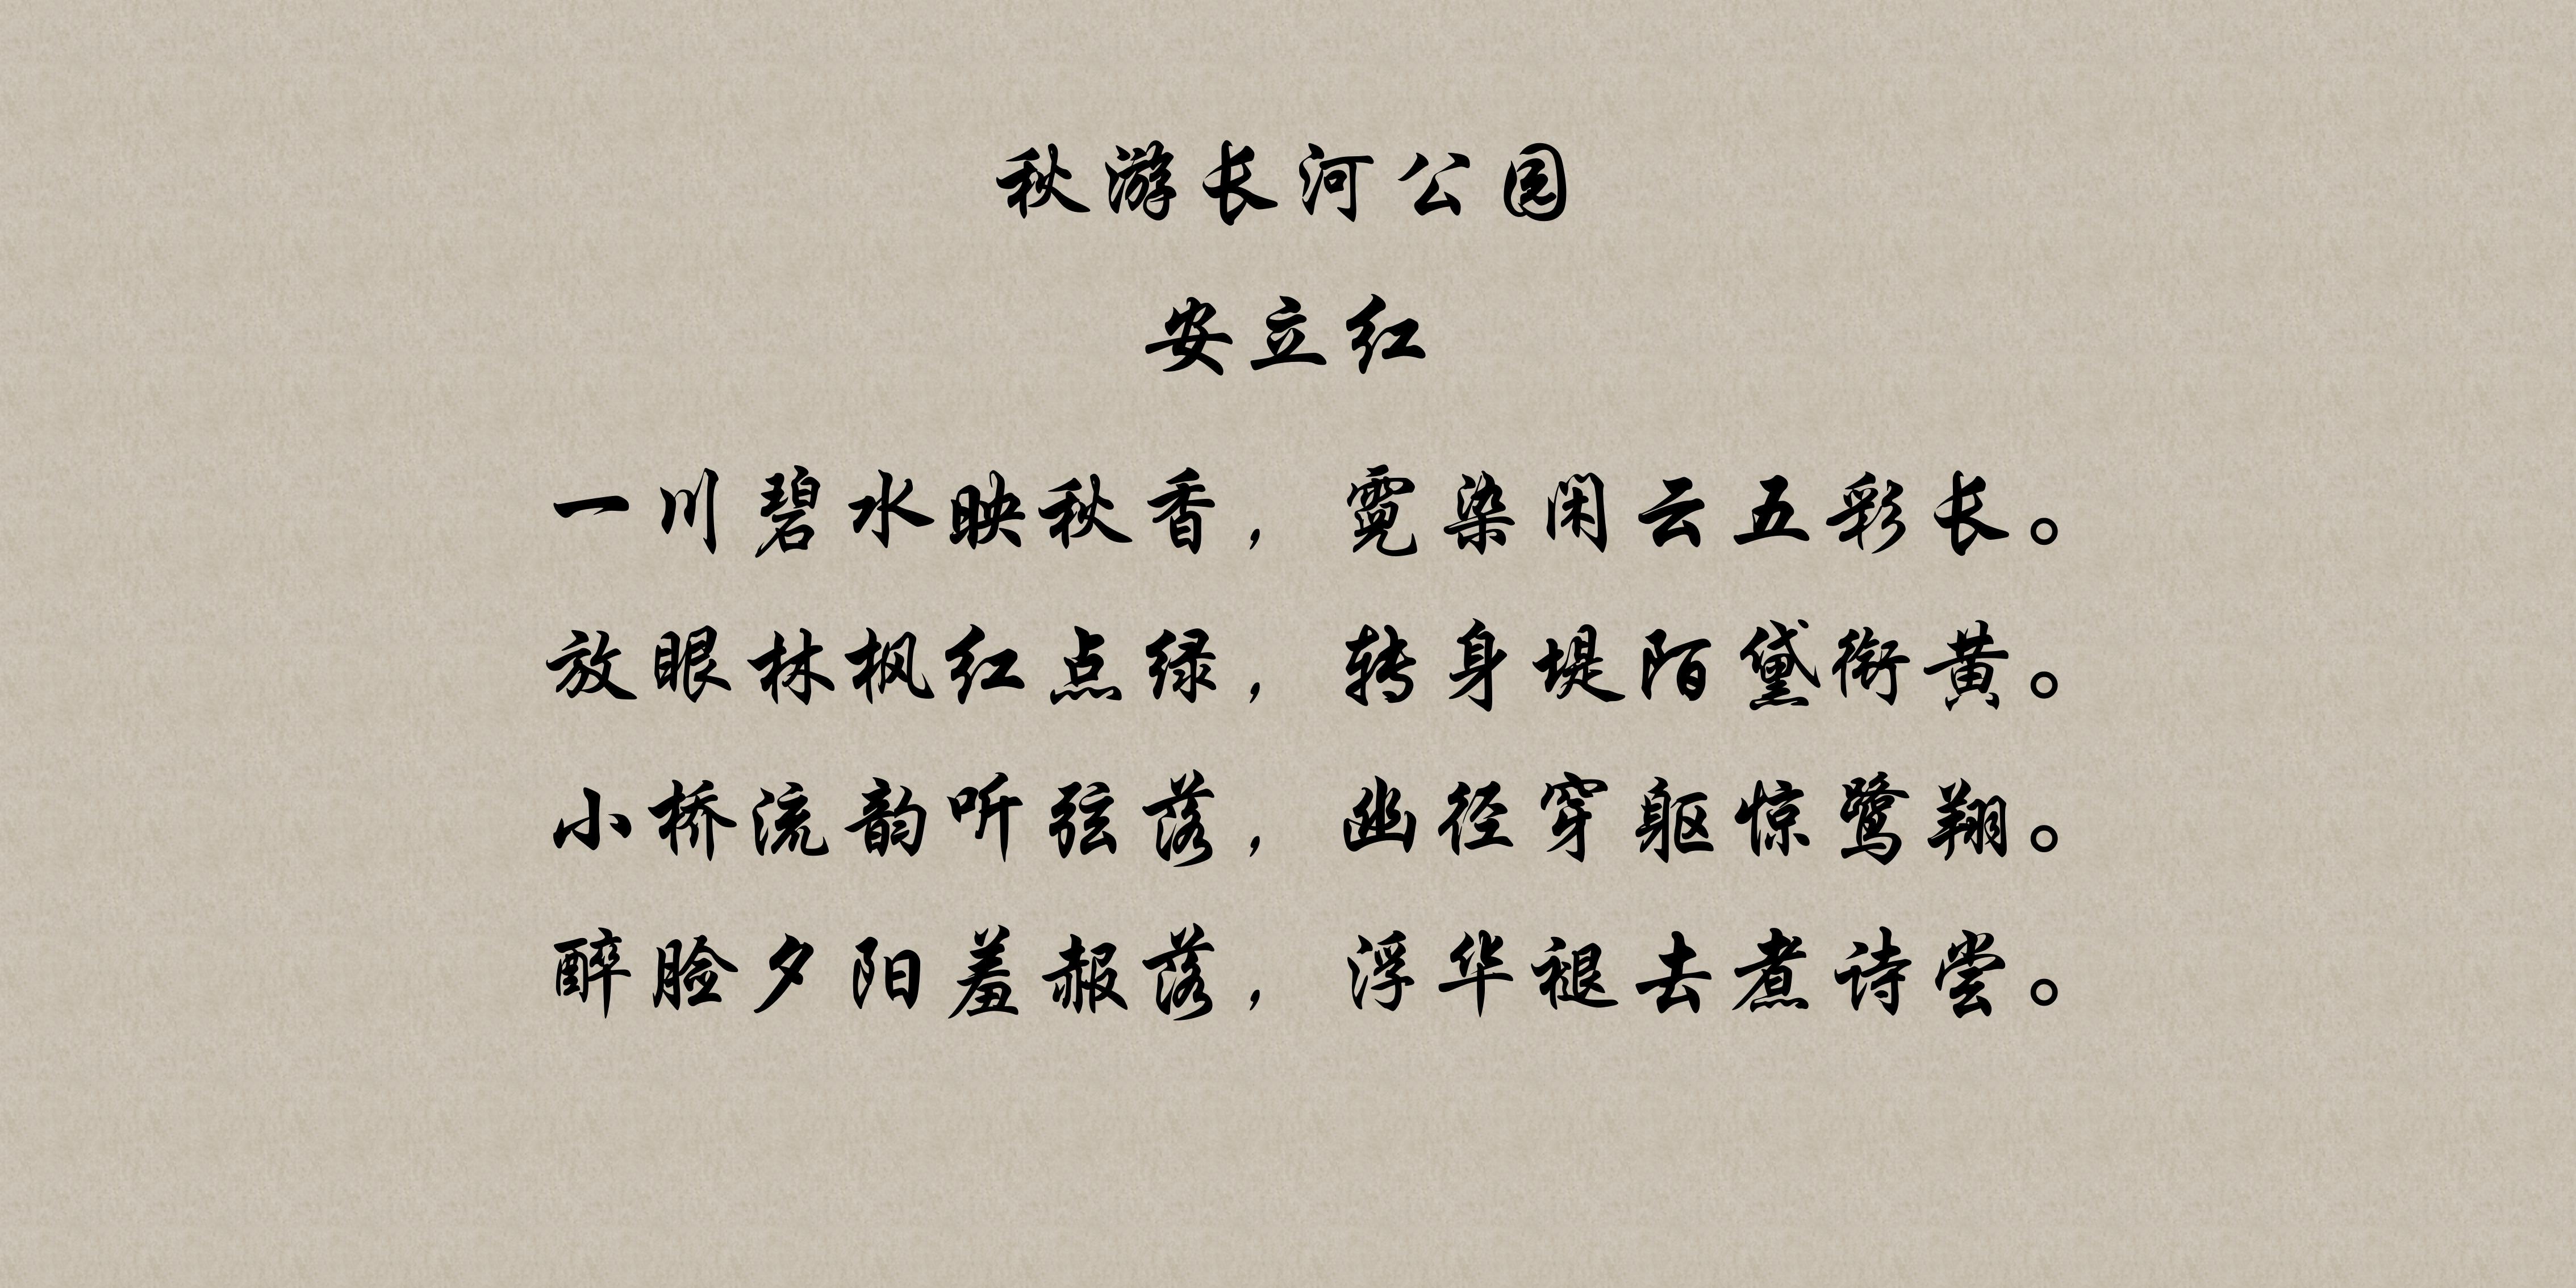 秋游长河公园
安立红
一川碧水映秋香，霓染闲云五彩长。
放眼林枫红点绿，转身堤陌黛衔黄。
小桥流韵听弦落，幽径穿躯惊鹭翔。
醉脸夕阳羞赧落，浮华褪去煮诗尝。